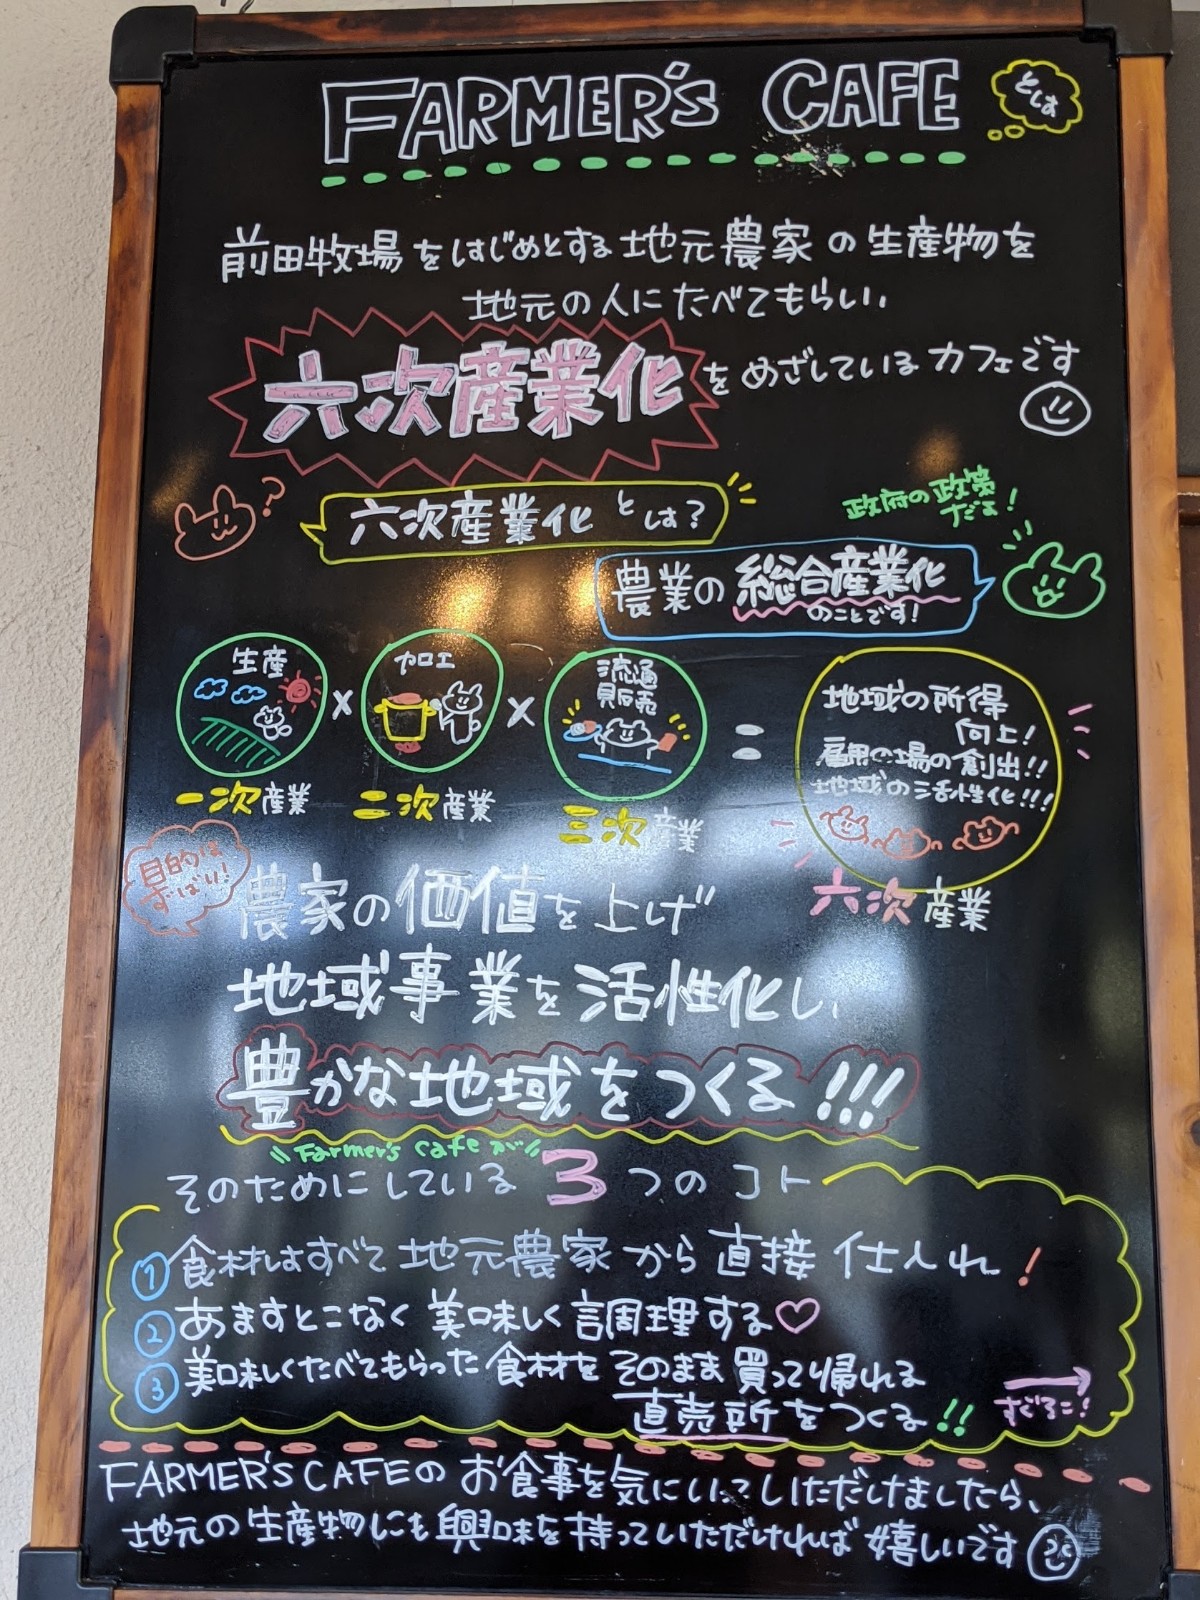 FARMER'S CAFE
とは
前田牧場をはじめとする地元農家の生産物を
地元の人にたべてもらい、
六次産業化をめざしているカフェです
六次産業化とは?
政府の政策
だよ!
農業の総合産業化
のことです!
生産
×
加工
×
流通
販売
=
地域の所得
向上!
雇用の場の創出!!
地域の活性化!!!
一次産業
二次産業
三次産業
六次産業
目的は
ずばり!
農家の価値を上げ
地域事業を活性化し、
豊かな地域をつくる!!!
\\Farmer's cafeが//
そのためにしている3つのコト
①食材はすべて地元農家から直接仕入れ!
②あますとこなく美味しく調理する♡
③美味しくたべてもらった食材をそのまま買って帰れる
直売所をつくる!!
→
すぐそこ!
FARMER'S CAFEのお食事を気にいっていただけましたら、
地元の生産物にも興味を持っていただければ嬉しいです